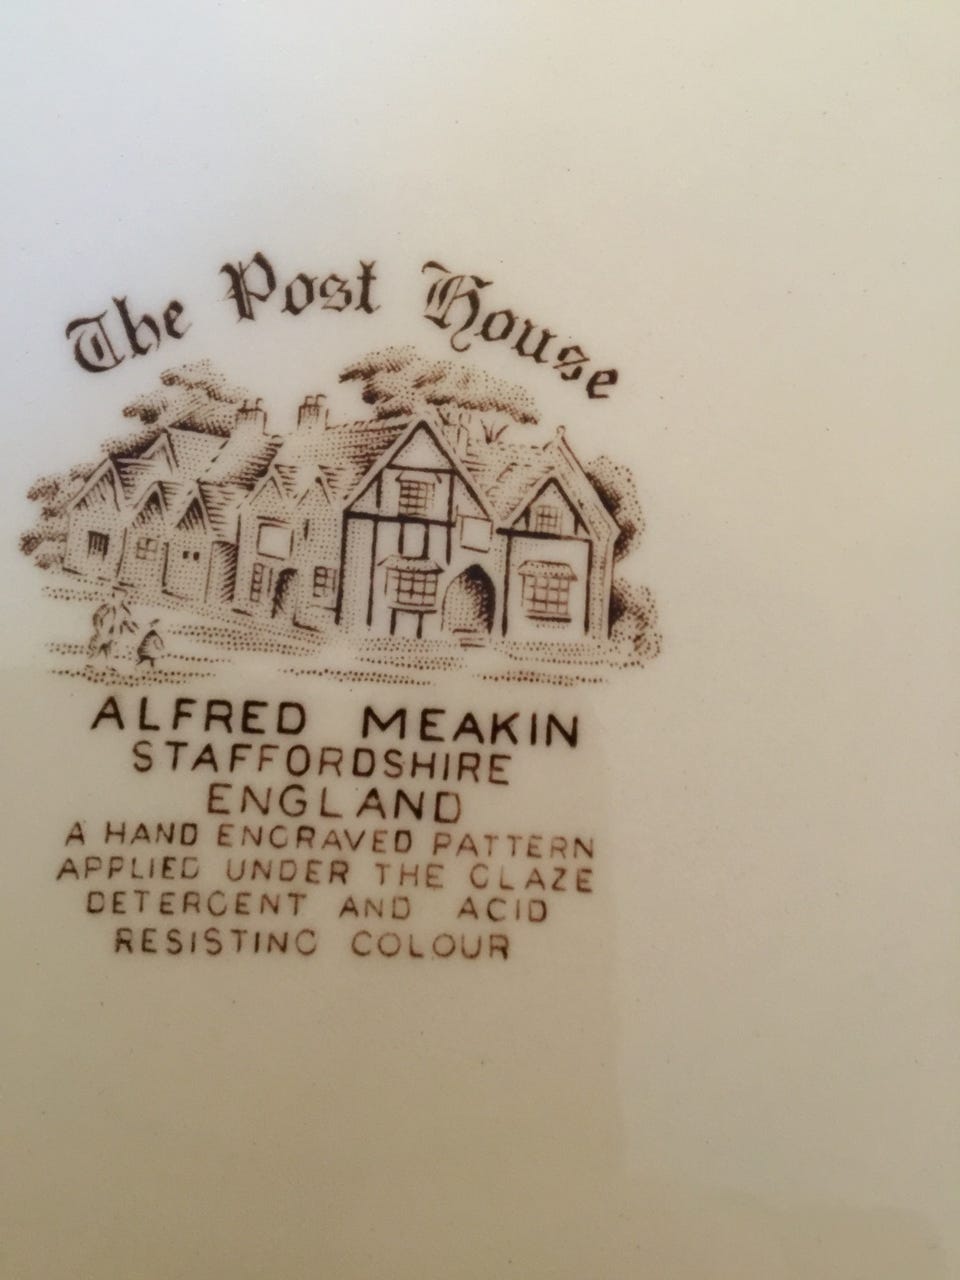 The Post House
ALFRED MEAKIN
STAFFORDSHIRE
ENGLAND
A HAND ENGRAVED PATTERN
APPLIED UNDER THE GLAZE
DETERGENT AND ACID
RESISTING COLOUR